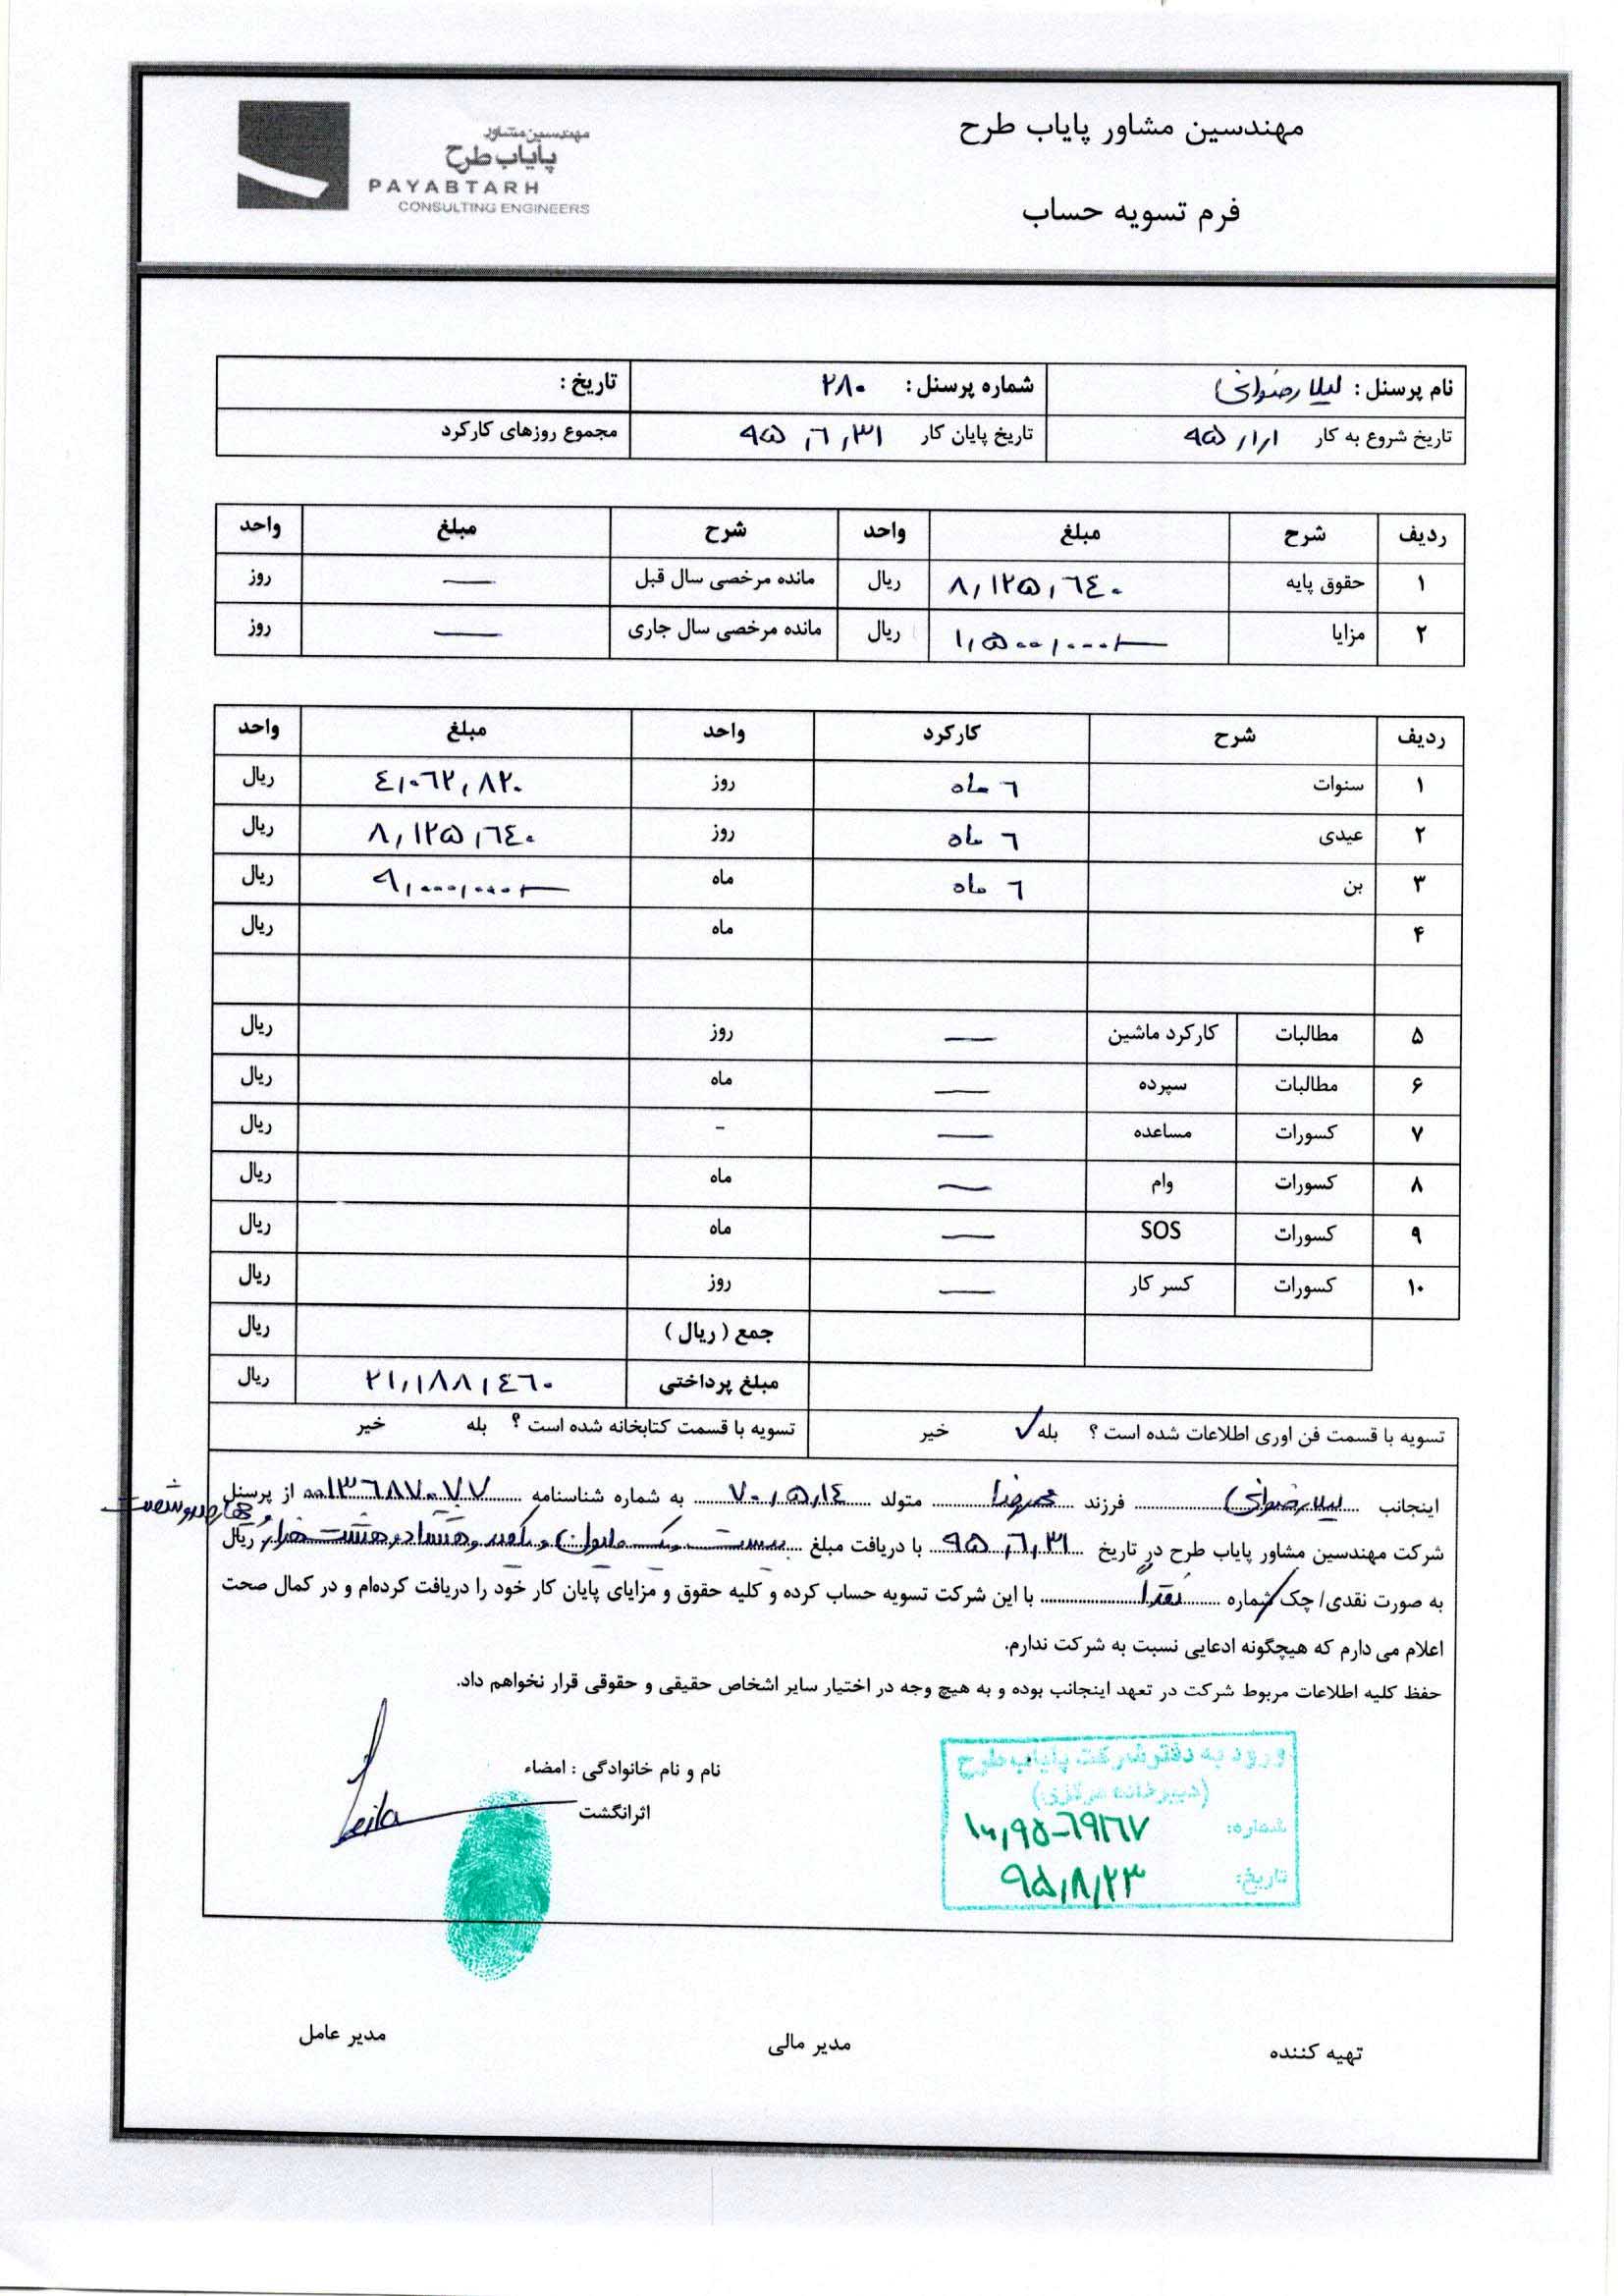 مهندسین مشاور پایاب طرح
مهندسین مشاور
پایاب طرح
PAYABTARH
CONSULTING ENGINEERS
فرم تسویه حساب
نام پرسنل : لیلا رضوانی شماره پرسنل : ۲۸۰ تاریخ :
تاریخ شروع به کار ۹۵/۱/۱ تاریخ پایان کار ۹۵/۶/۳۱ مجموع روزهای کارکرد
ردیف شرح مبلغ واحد شرح مبلغ واحد
۱ حقوق پایه ۸,۱۲۵,۶۴۰ ریال مانده مرخصی سال قبل — روز
۲ مزایا ۱,۵۰۰,۰۰۰ ریال مانده مرخصی سال جاری — روز
ردیف شرح کارکرد واحد مبلغ واحد
۱ سنوات ۶ ماه روز ۴,۰۶۲,۸۲۰ ریال
۲ عیدی ۶ ماه روز ۸,۱۲۵,۶۴۰ ریال
۳ بن ۶ ماه ماه ۹,۰۰۰,۰۰۰ ریال
۴ ماه ریال
۵ مطالبات کارکرد ماشین — روز ریال
۶ مطالبات سپرده — ماه ریال
۷ کسورات مساعده — - ریال
۸ کسورات وام — ماه ریال
۹ کسورات SOS — ماه ریال
۱۰ کسورات کسر کار — روز ریال
جمع ( ریال ) ریال
مبلغ پرداختی ۲۱,۱۸۸,۴۶۰ ریال
تسویه با قسمت فن اوری اطلاعات شده است ؟ بله ✓ خیر تسویه با قسمت کتابخانه شده است ؟ بله خیر
اینجانب لیلا رضوانی فرزند محمدرضا متولد ۷۰/۵/۱۴ به شماره شناسنامه ۰۰۱۳۶۸۷۰۷۷ از پرسنل
چهارصد و شصت
شرکت مهندسین مشاور پایاب طرح در تاریخ ۹۵/۶/۳۱ با دریافت مبلغ بیست و یک ملیون و یکصد و هشتاد و هشت هزار و ریال
به صورت نقدی/ چک شماره نقدا با این شرکت تسویه حساب کرده و کلیه حقوق و مزایای پایان کار خود را دریافت کرده‌ام و در کمال صحت
اعلام می دارم که هیچگونه ادعایی نسبت به شرکت ندارم.
حفظ کلیه اطلاعات مربوط شرکت در تعهد اینجانب بوده و به هیچ وجه در اختیار سایر اشخاص حقیقی و حقوقی قرار نخواهم داد.
ورود به دفتر شرکت پایاب طرح
(دبیرخانه مرکزی)
شماره: ۱۰,۹۵-۶۹۲۶۷
تاریخ: ۹۵/۸/۲۳
نام و نام خانوادگی : امضاء
اثرانگشت
Leila
تهیه کننده مدیر مالی مدیر عامل